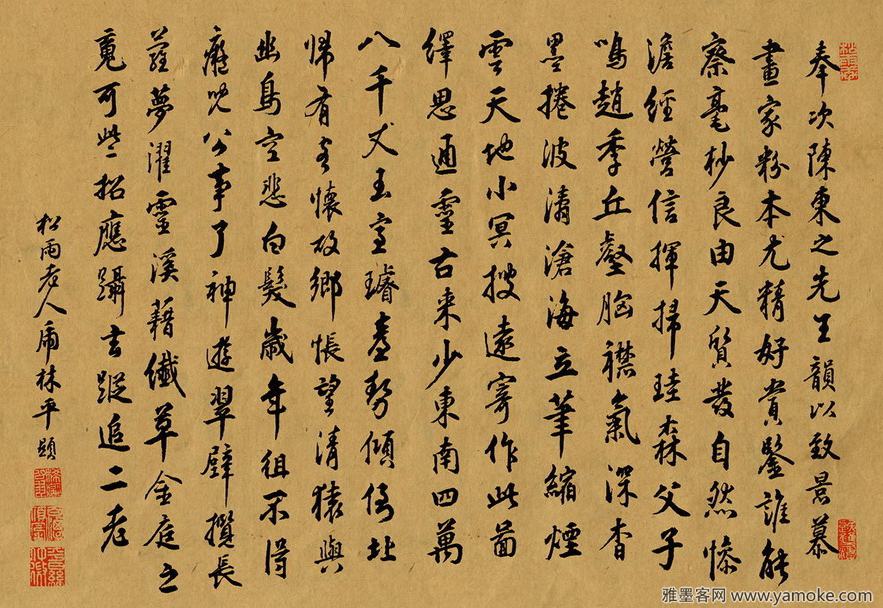 奉次陳東之先生韻以致景慕
畫家粉本尤精好賞鑒誰能
察毫杪良由天質發自然慘
澹經營信揮掃珪森父子
鳴趙季丘壑胸襟氣深杳
墨捲波濤滄海立筆縮煙
雲天地小冥搜遠寄作此圖
繹思通靈古來少東南四萬
八千丈玉室璿臺勢傾倚北
歸有客懷故鄉悵望清猿與
幽鳥空悲白髮歲年徂不得
癡兒公事了神遊翠壁攬長
蘿夢濯靈溪藉纖草金庭之
魂可些招應躡玄蹤追二老
松雨老人虎林平顯
雅墨客网 www.yamoke.com